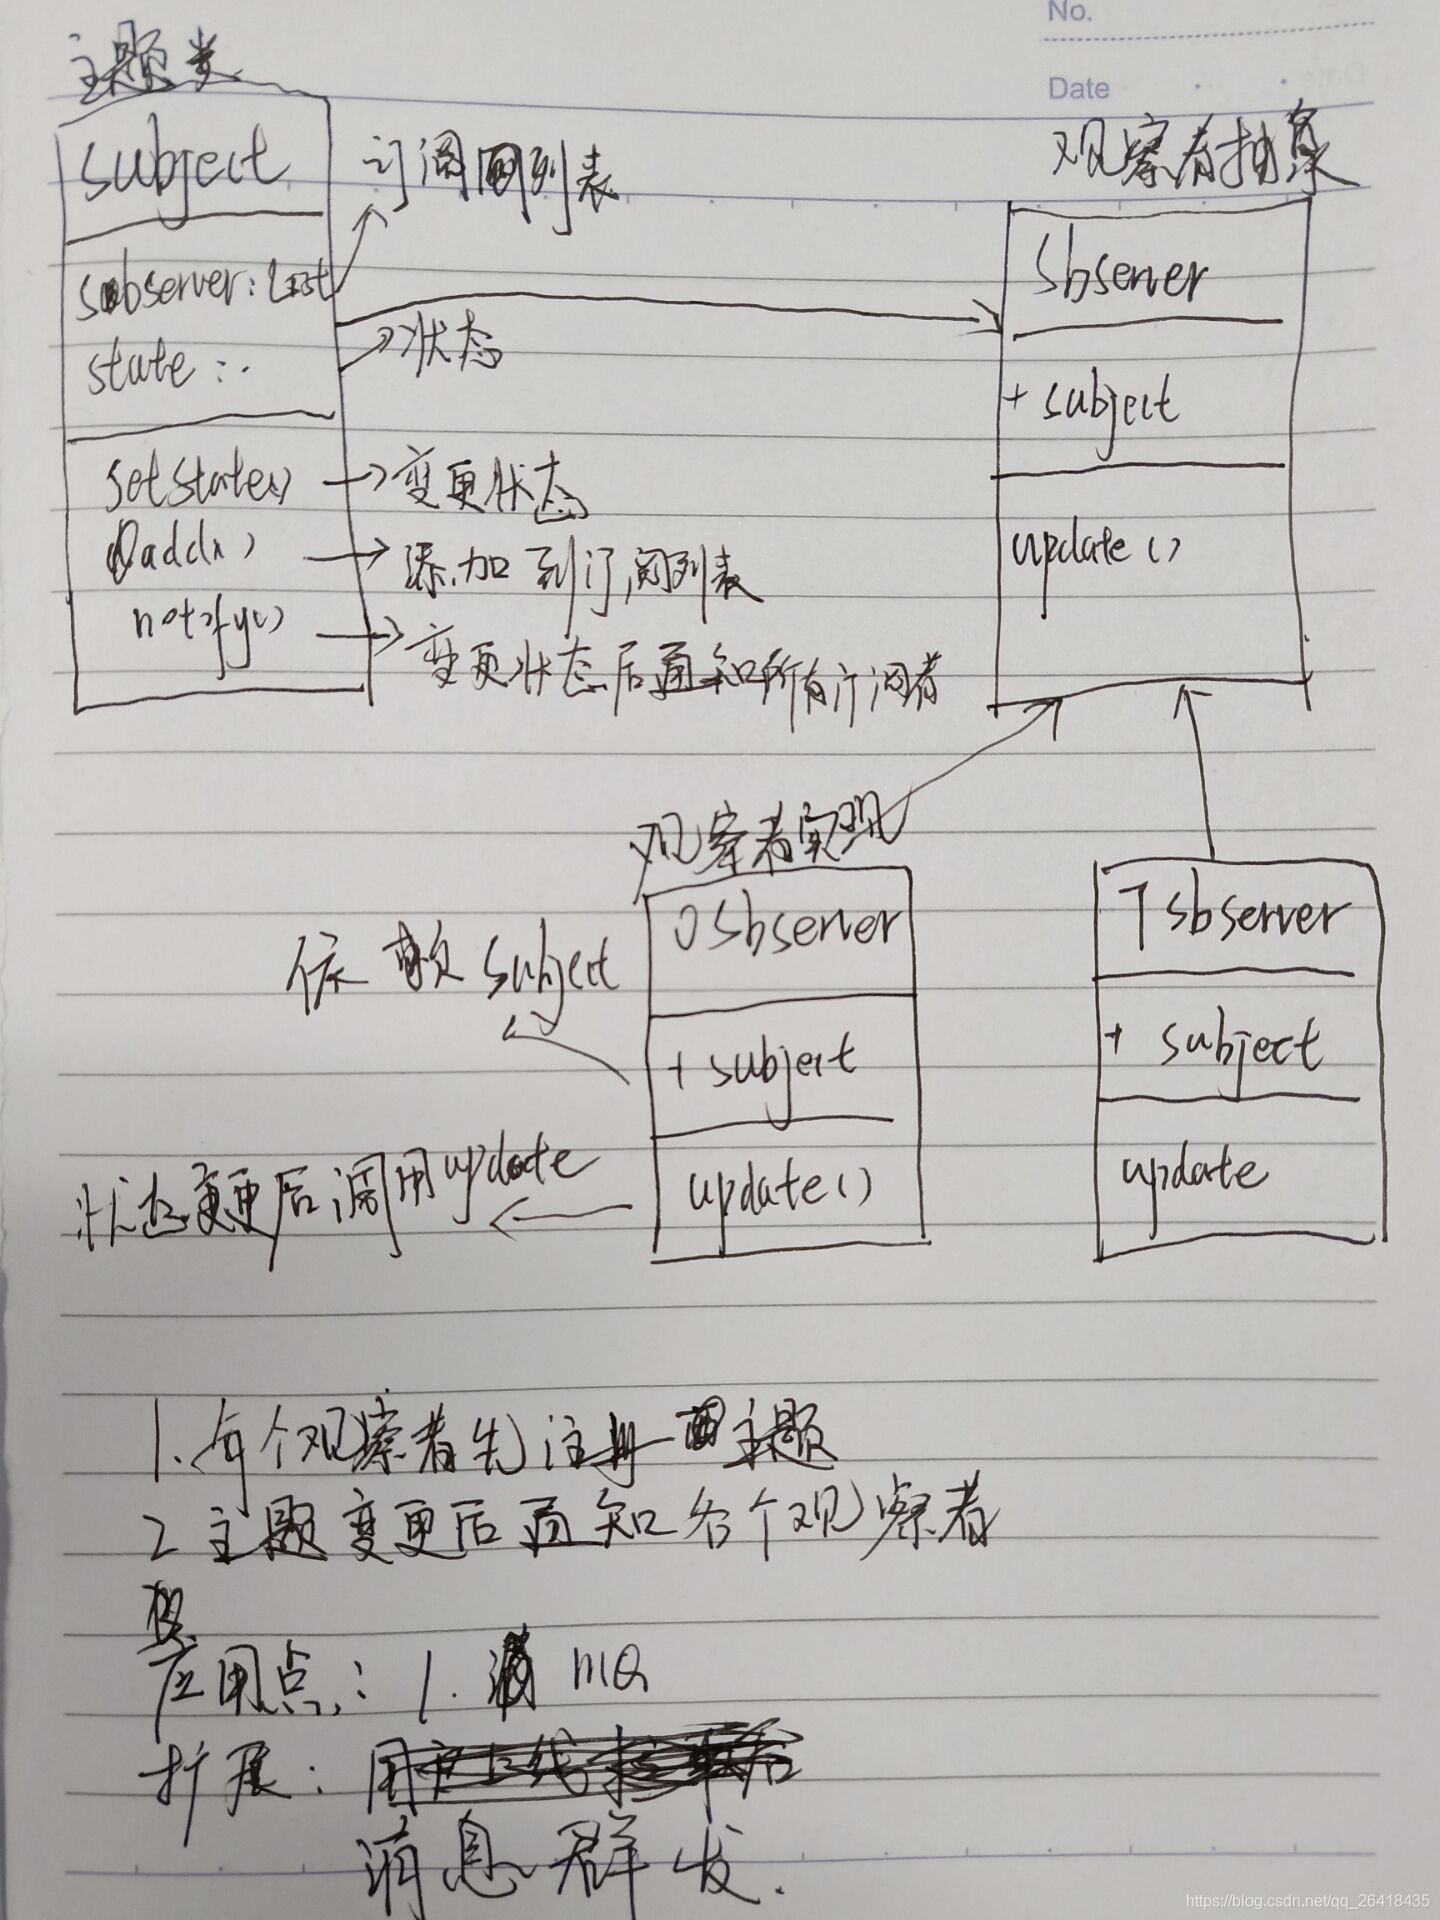 No.
Date
主题类
subject
订阅列表
sobserver: List
state :.
状态
setstate()
变更状态
add()
添加到订阅列表
notify()
变更状态后通知所有订阅者
观察者抽象
Sbserver
+ subject
update()
观察者实现
OSbserver
依赖 subject
+ subject
状态变更后调用update
update()
Tsbserver
+ subject
update
1.每个观察者先注册主题
2 主题变更后通知各个观察者
应用点: 1. MQ
扩展:
消息群发.
https://blog.csdn.net/qq_26418435